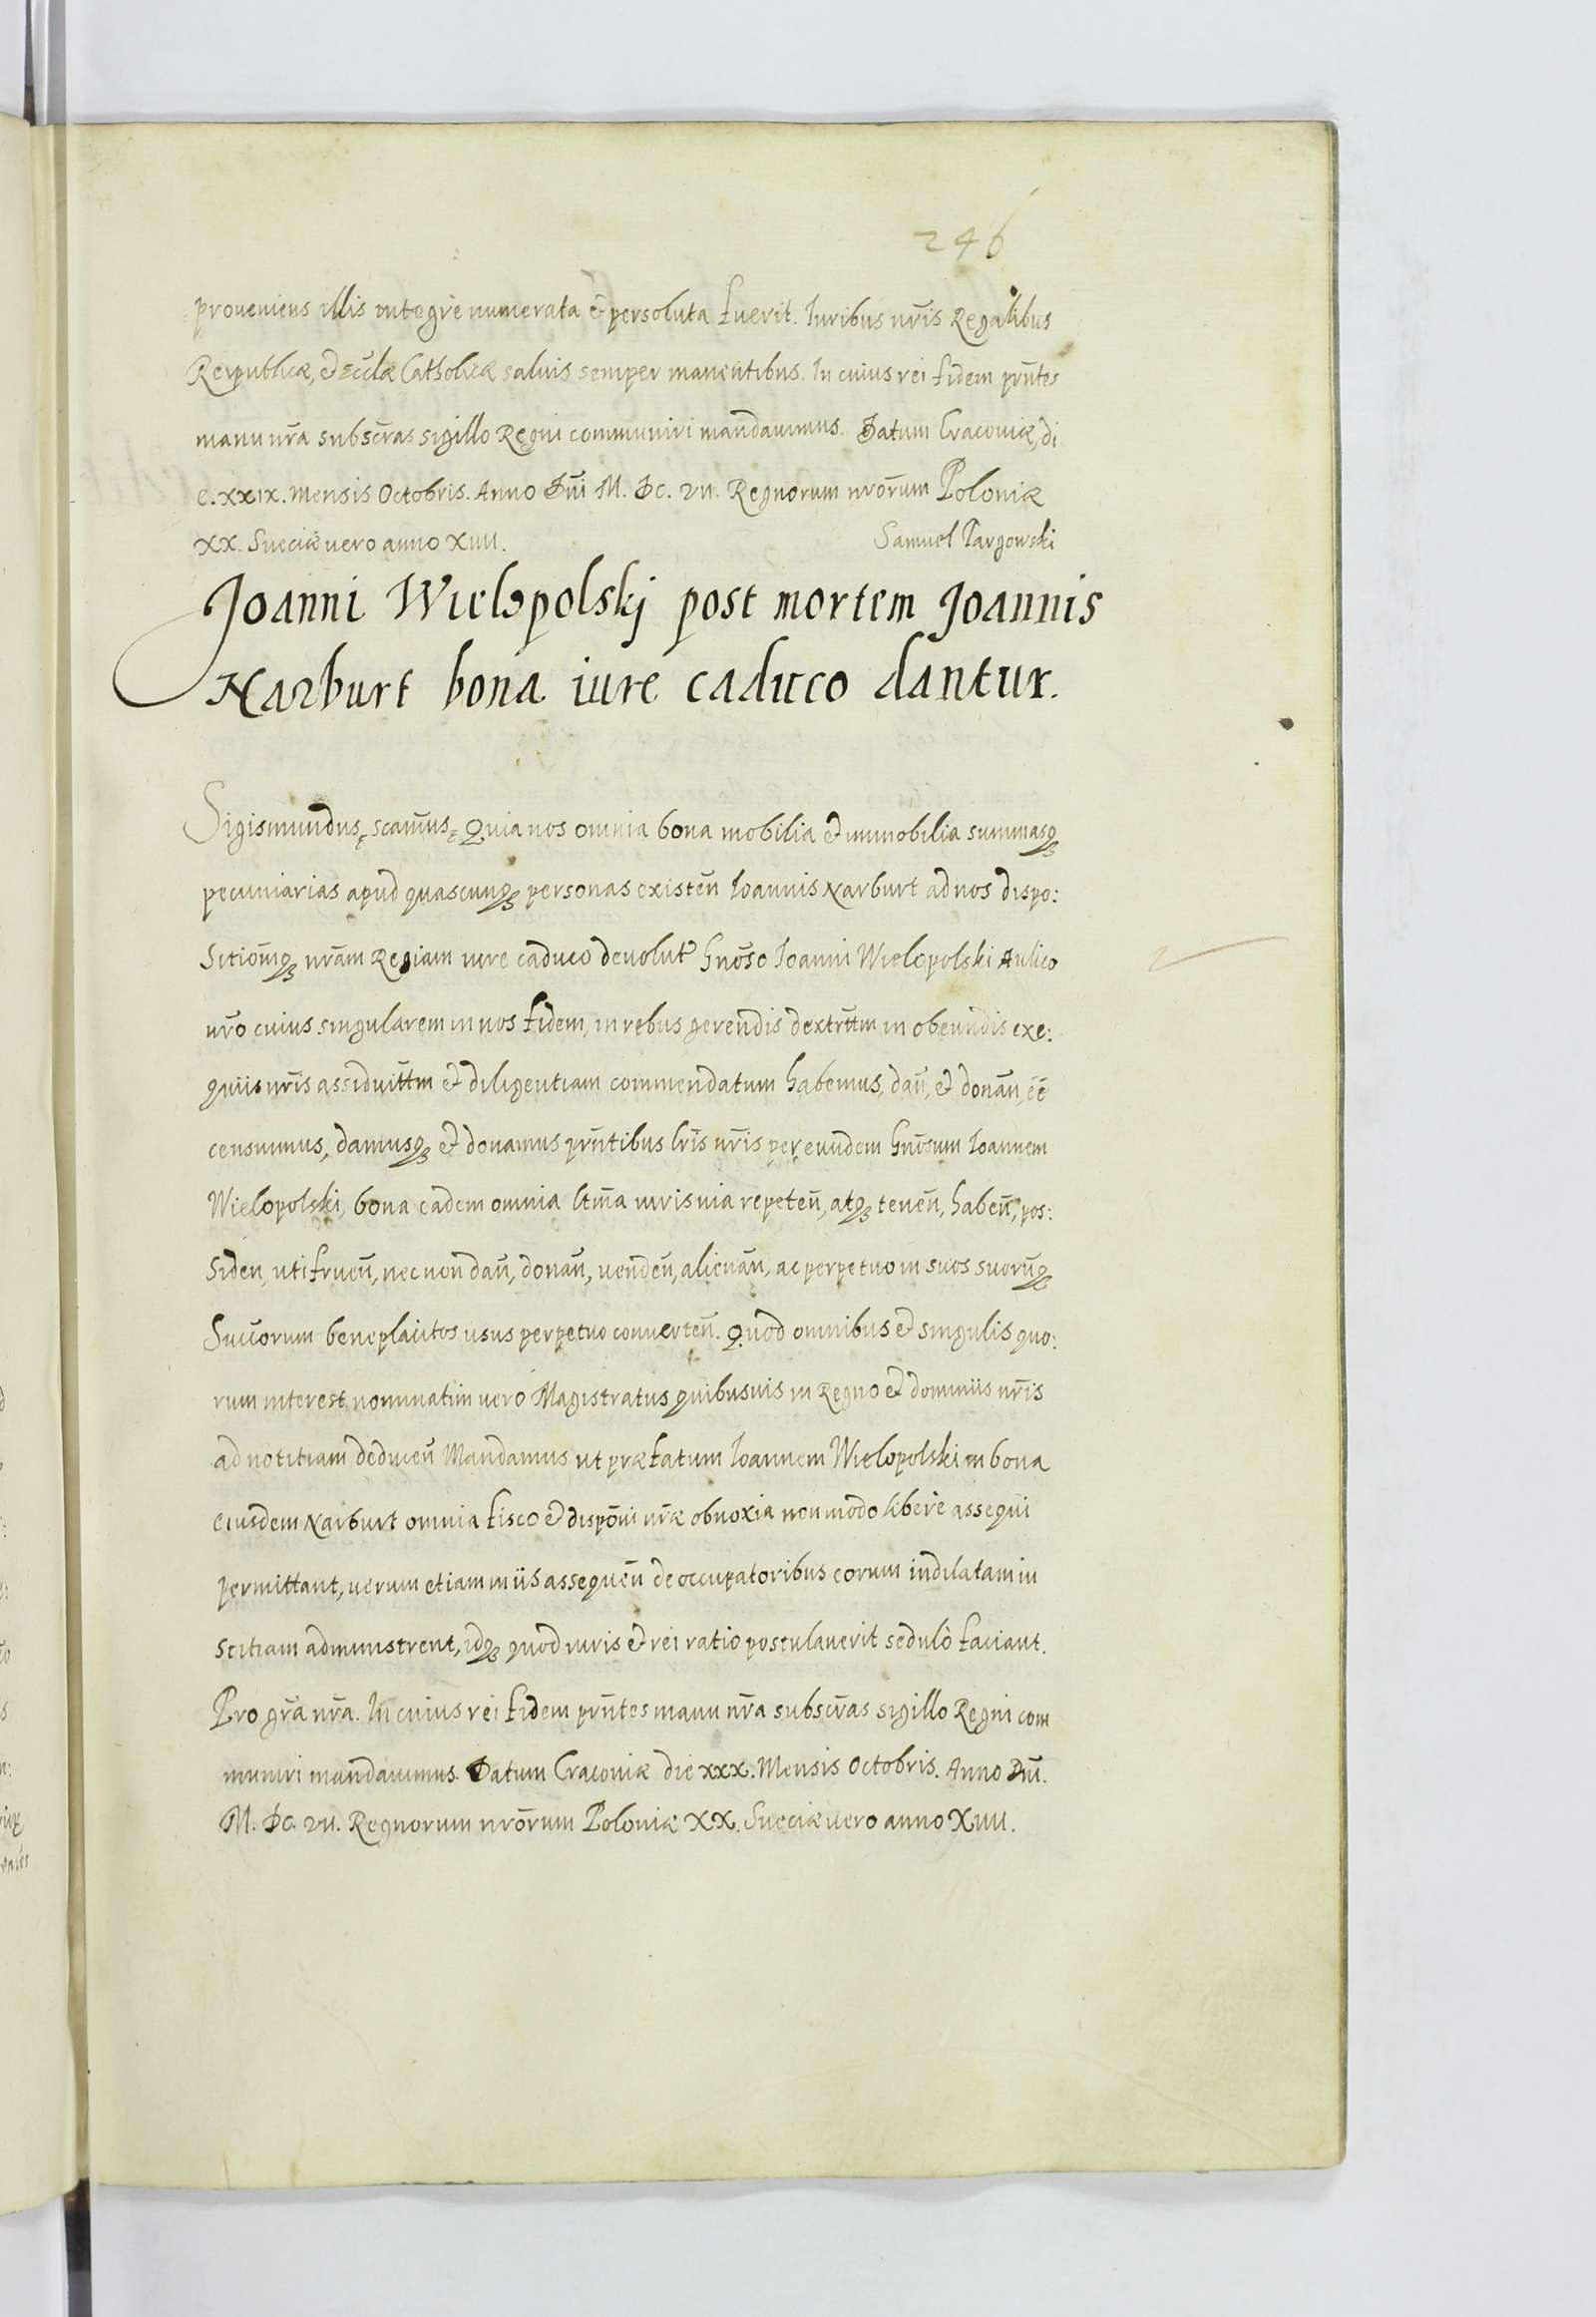 246
proveniens illis integrè numerata & persoluta fuerit. Iuribus nr̄is Regalibus
Reipublicæ, & Eccl̄æ Catholicæ salvis semper manentibus. In cuius rei fidem pr̄ntes
manu nr̄a subscr̄as sigillo Regni communiri mandavimus. Datum Cracoviæ, di
e. XXIX. Mensis Octobris. Anno Dn̄i M. DC. VII. Regnorum nrōrum Poloniæ
XX. Sueciæ vero anno XIIII. Samuel Targowski
Joanni Wielopolskj post mortem Joannis
Narburt bona iure caduco dantur.
Sigismundus ę scām̄us ę Quia nos omnia bona mobilia & immobilia summasqꝫ
pecuniarias apud quascunqꝫ personas existen̄ Ioannis Narburt ad nos dispo:
sitiom̄qꝫ nr̄am Regiam iure caduco devolut Gnōso Ioanni Wielopolski Aulico
nr̄o cuius singularem in nos fidem, in rebus gerendis dextrītm in obeundis exe:
quiis nr̄is assiduitt̄m & diligentiam commendatum habemus, dan̄, & donan̄, ēē
censuimus, damusqꝫ & donamus pr̄ntibus lr̄is nr̄is per eundem Gnōsum Ioannem
Wielopolski, bona eadem omnia ltm̄a iuris via repeten̄, atqꝫ tenen̄, haben̄, pos:
siden, uti fruen̄, nec non dan̄, donan̄, venden̄, alienan̄, ac perpetuo in suos suorūqꝫ
Succ̄orum beneplacitos usus perpetuo converten̄. Quod omnibus & singulis quo:
rum interest nominatim vero Magistratus quibusvis in Regno & dominiis nr̄is
ad notitiam deducen̄ Mandamus ut præfatum Ioannem Wielopolski in bona
eiusdem Narburt omnia fisco & dispōni nr̄æ obnoxia non modo liberè assequi
permittant, verum etiam in iis assequen̄ de occupatoribus eorum indilatam iu
stitiam administrent, idqꝫ quod iuris & rei ratio postulaverit sedulò faciant.
Pro gr̄a nr̄a. In cuius rei fidem pr̄ntes manu nr̄a subscr̄as sigillo Regni com
muniri mandavimus. Datum Cracoviæ die XXX. Mensis Octobris. Anno Dn̄i.
M. DC. VII. Regnorum nrōrum Poloniæ XX. Sueciæ vero anno XIIII.